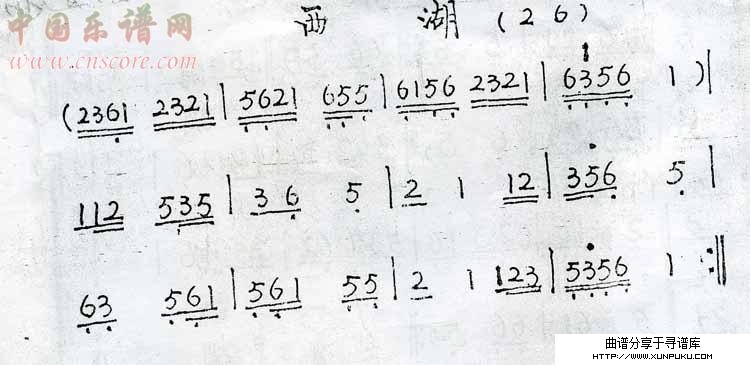 中国乐谱网
www.cnscore.com
西 湖 (26)
(2361 2321 | 5621 655 | 6156 2321 | 6356 1 ) |
112 535 | 36 5 | 2 1 12 | 356 5 |
63 561 | 561 55 | 2 1 123 | 5356 1 :||
曲谱分享于寻谱库
HTTP://WWW.XUNPUKU.COM